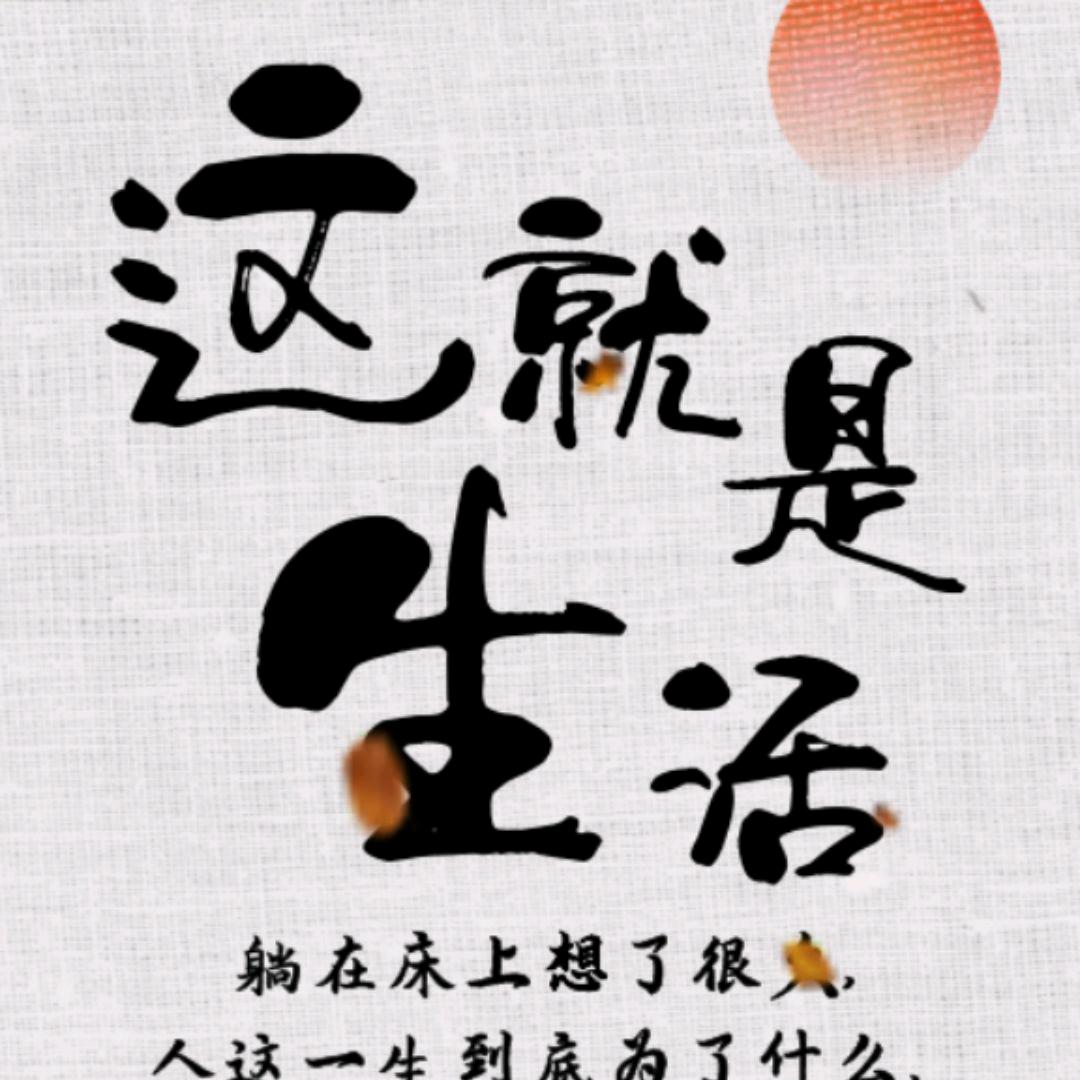 这就是
生活
躺在床上想了很久，
人这一生到底为了什么，